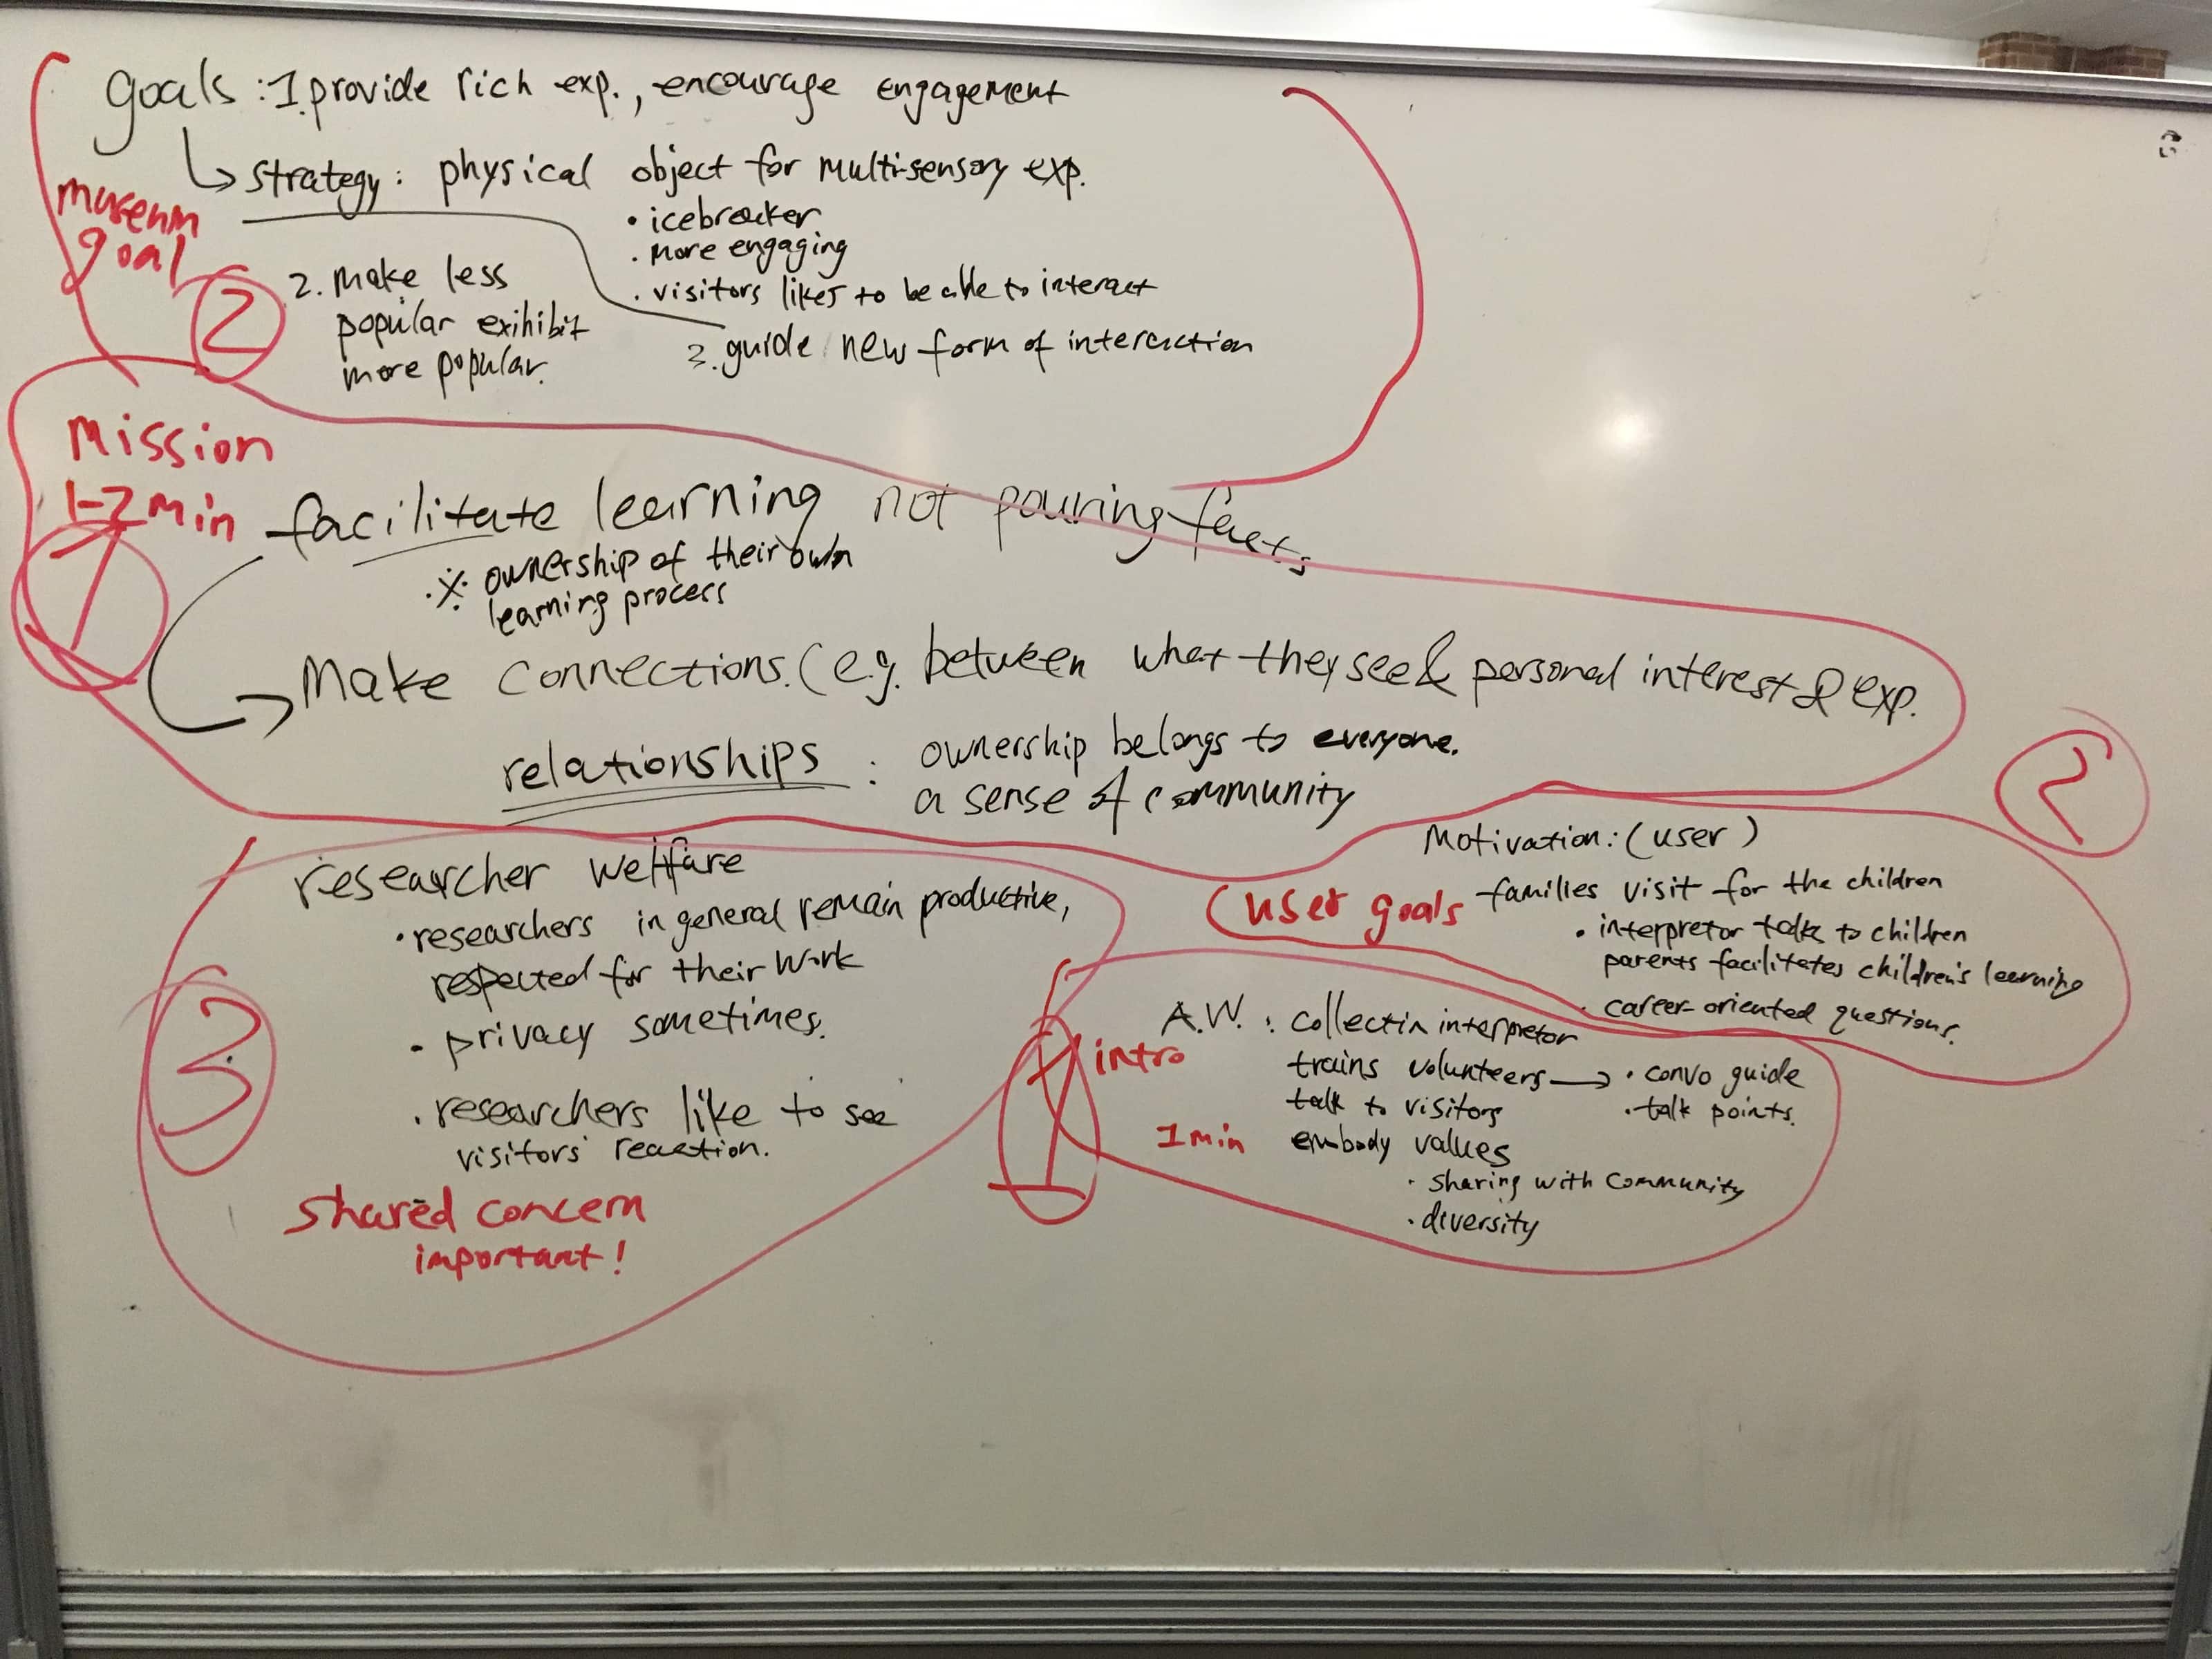 goals : 1. provide rich exp., encourage engagement
strategy : physical object for multi-sensory exp.
• icebreaker
• more engaging
• visitors likes to be able to interact
museum
goal
2
2. make less
popular exihibit
more popular.
3. guide new form of interaction
Mission
1-2 min
1
facilitate learning not pouring facts
※ ownership of their own
learning process
Make connections. (e.g. between what they see & personal interest & exp.
relationships : ownership belongs to everyone.
a sense of community
2
Motivation: (user)
user goals
families visit for the children
• interpretor talks to children
parents facilitates children's learning
• career-oriented questions.
researcher welfare
• researchers in general remain productive,
respected for their work
• privacy sometimes.
• researchers like to see
visitors' reaction.
3
shared concern
important!
1
intro
1 min
A.W. : collectin interpretor
trains volunteers → • convo guide
• talk points.
talk to visitors
embody values
• sharing with community
• diversity